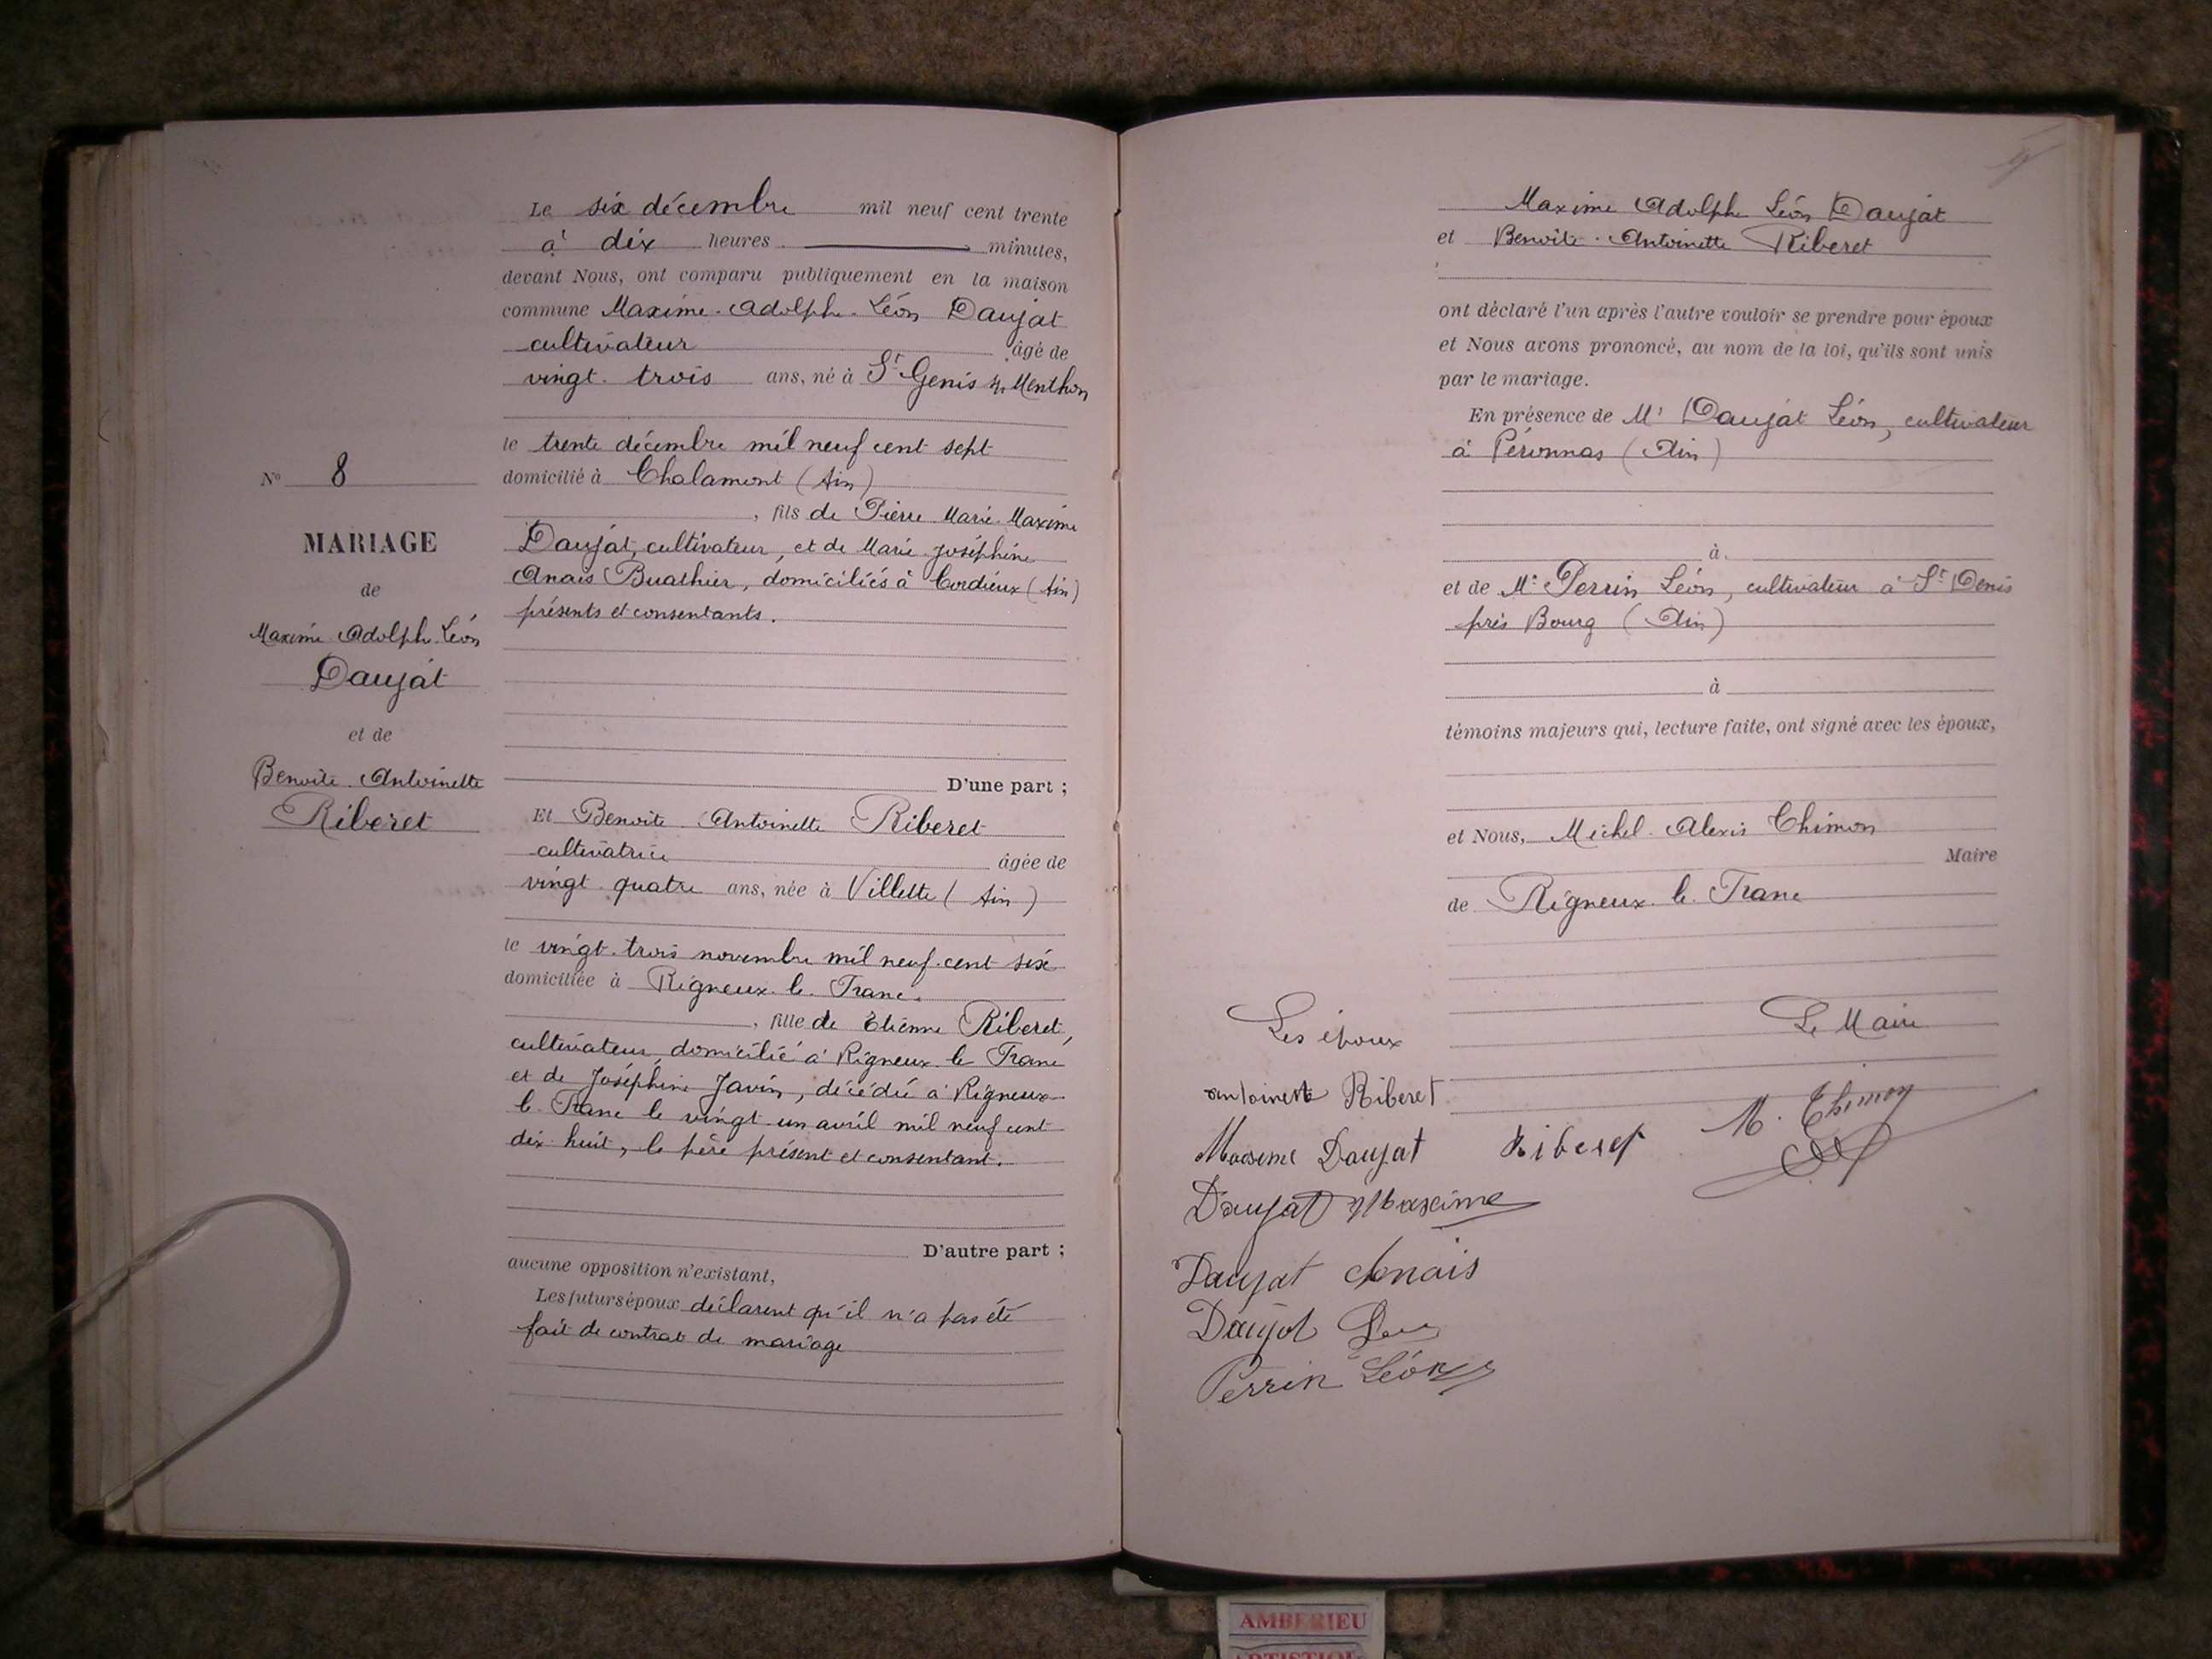 Le six décembre mil neuf cent trente
à dix heures minutes,
devant Nous, ont comparu publiquement en la maison
commune Maxime-Adolph-Léon Daujat
cultivateur âgé de
vingt-trois ans, né à St Genis s/ Menthon
le trente décembre mil neuf cent sept
domicilié à Chalamont (Ain)
, fils de Pierre-Marie-Maxime
Daujat, cultivateur, et de Marie-Joséphine
Anaïs Buathier, domiciliés à Cordieux (Ain)
présents et consentants.
D'une part ;
Et Benoite-Antoinette Riberet
cultivatrice âgée de
vingt-quatre ans, née à Villette (Ain)
le vingt-trois novembre mil neuf-cent six
domiciliée à Rigneux-le-Franc.
, fille de Etienne Riberet,
cultivateur, domicilié à Rigneux-le-Franc
et de Joséphine Javin, décédée à Rigneux-
le-Franc le vingt-un avril mil neuf cent
dix-huit, le père présent et consentant.
D'autre part ;
aucune opposition n'existant,
Les futurs époux déclarent qu'il n'a pas été
fait de contrat de mariage
N° 8
MARIAGE
de
Maxime-Adolph-Léon
Daujat
et de
Benoite-Antoinette
Riberet
Maxime Adolph Léon Daujat
et Benoite-Antoinette Riberet
ont déclaré l'un après l'autre vouloir se prendre pour époux
et Nous avons prononcé, au nom de la loi, qu'ils sont unis
par le mariage.
En présence de Mr Daujat Léon, cultivateur
à Péronnas (Ain)
à
et de Mr Perrin Léon, cultivateur à St Denis
près Bourg (Ain)
à
témoins majeurs qui, lecture faite, ont signé avec les époux,
et Nous, Michel-Alexis Thimon
Maire
de Rigneux-le-Franc
Les époux Le Maire
antoinette Riberet
Maxime Daujat Riberet M. Thimon
Daujat Maxime
Daujat Anais
Daujat Léon
Perrin Léon
AMBERIEU